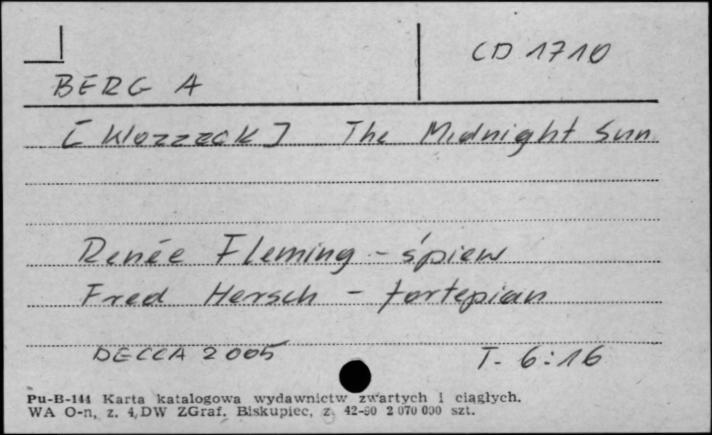 CD 1710
BERG A
[Wozzeck] The Midnight Sun
Renée Fleming - śpiew
Fred Hersch - fortepian
DECCA 2005
T. 6:16
Pu-B-144 Karta katalogowa wydawnictw zwartych i ciągłych.
WA O-n, z. 4, DW ZGraf. Biskupiec, z. 42-80 2 070 000 szt.